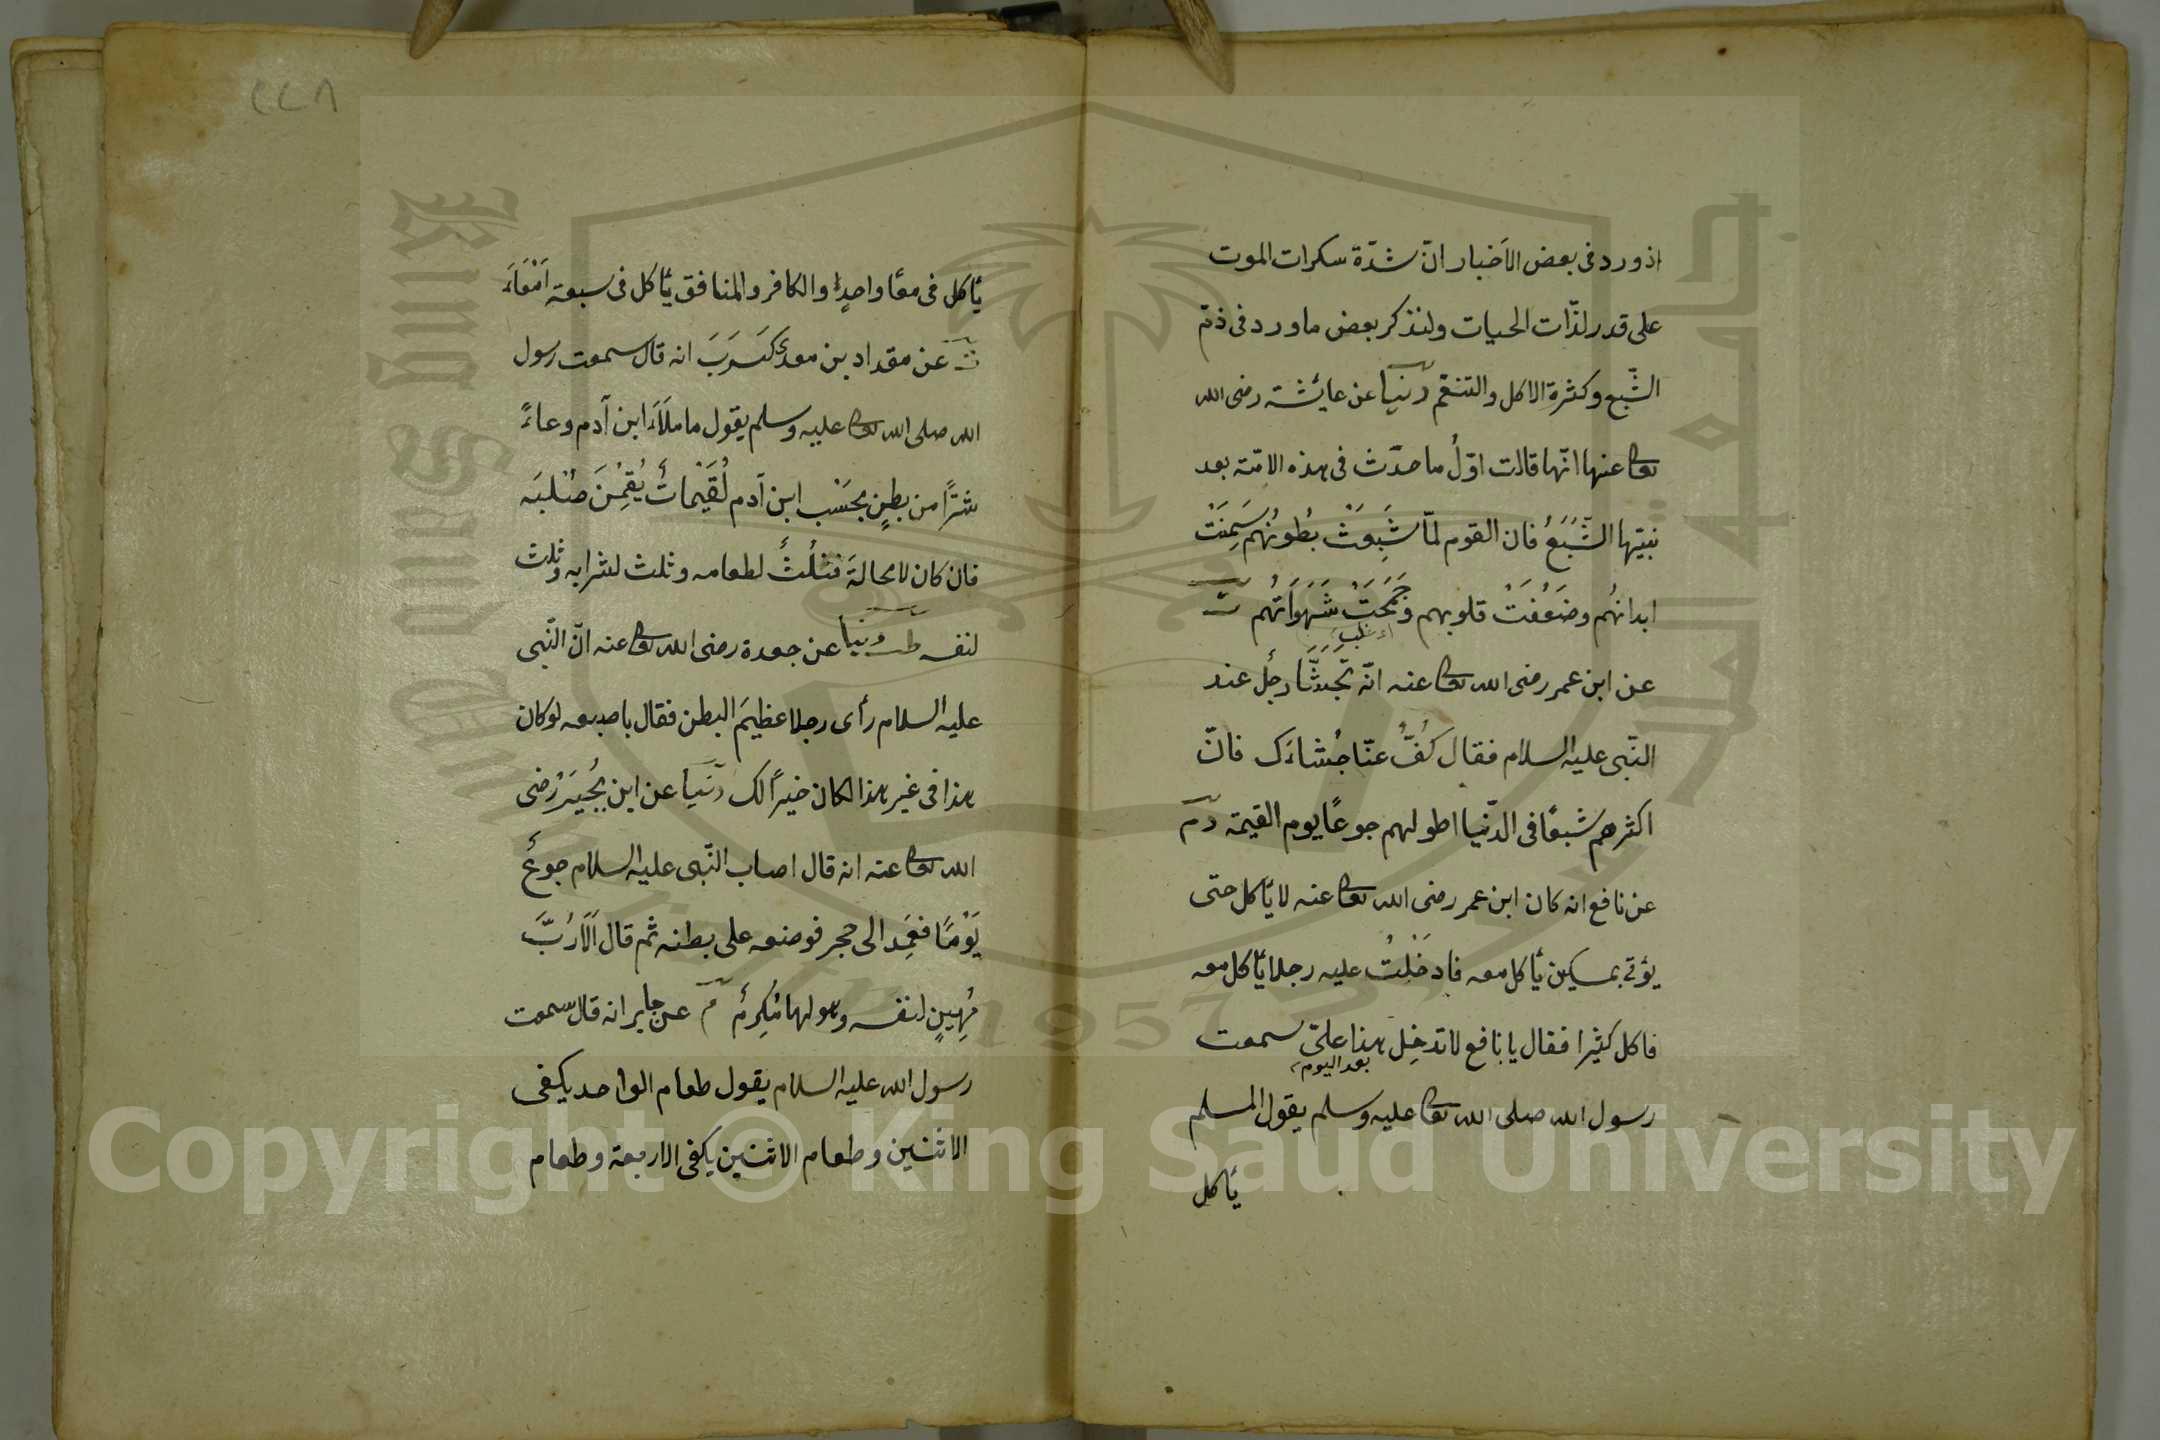 اذ ورد فى بعض الاَخبار انّ شدّة سكرات الموت
على قدر لذّات الحيات ولنذكر بعض ما ورد فى ذمّ
الشّبع وكثرةِ الاكل والتنعّم دنيا عن عايشة رضى الله
تعا عنها انّها قالت اوّلُ ما حدّث فى هذه الامّة بعد
نبيّها الشّبَعُ فان القوم لمّا شَبِعَتْ بُطونُهم سَمِنَتْ
ابدانهُم وضَعُفَتْ قلوبهم وجَمَحَتْ شَهَوَاتُهم ت
اى غلب
عن ابن عمر رضى الله تعا عنه انّه تَجَشَّأَ رجلٌ عند
النّبى عليه السلام فقال كُفَّ عنّا جُشاءَك فانّ
اكثرهم شبعًا فى الدّنيا اطولهم جوعًا يوم القيمة دم
عن نافع انه كان ابن عمر رضى الله تعا عنه لا يأكل حتى
يؤتى بمسكين يأكل معه فادخَلْتُ عليه رجلا يأكل معه
فاكل كثيرا فقال يا نافع لا تدخِل هذا علىّ سمعت
بعد اليوم
رسول الله صلى الله تعا عليه وسلم يقول المسلم
يأكل
٢٢٨
يأكل فى معًا واحدٍ والكافر والمنافق يأكل فى سبعة اَمْعَاءَ
ت عن مقداد بن معدى كَرَبَ انه قال سمعت رسول
الله صلى الله تعا عليه وسلم يقول ما ملَاَءَ ابن آدم وعاءً
شرًّا من بطنٍ بحَسْب ابن آدم لُقَيْماتٌ يُقِمْنَ صُلبَه
فان كان لا محالةَ فثُلُثٌ لطعامه وثلث لشرابه وثلث
لنفسه طب دنيا عن جعدة رضى الله تعا عنه انّ النّبى
عليه السلام رأى رجلا عظيمَ البطن فقال باصبعه لو كان
هذا فى غير هذا لكان خيرًا لك دنيا عن ابن بُجَيَرْ رضى
الله تعا عنه انه قال اصاب النّبى عليه السلام جوعٌ
يَوْمًا فعَمِد الى حجر فوضعه على بطنه ثم قال اَلَا رُبَّ
مُهِينٍ لنفسه وهو لها مُكرِمٌ م عن جابر انه قال سمعت
رسول الله عليه السلام يقول طعام الواحد يكفى
الاثنين وطعام الاثنين يكفى الاربعة وطعام
Copyright © King Saud University
1957